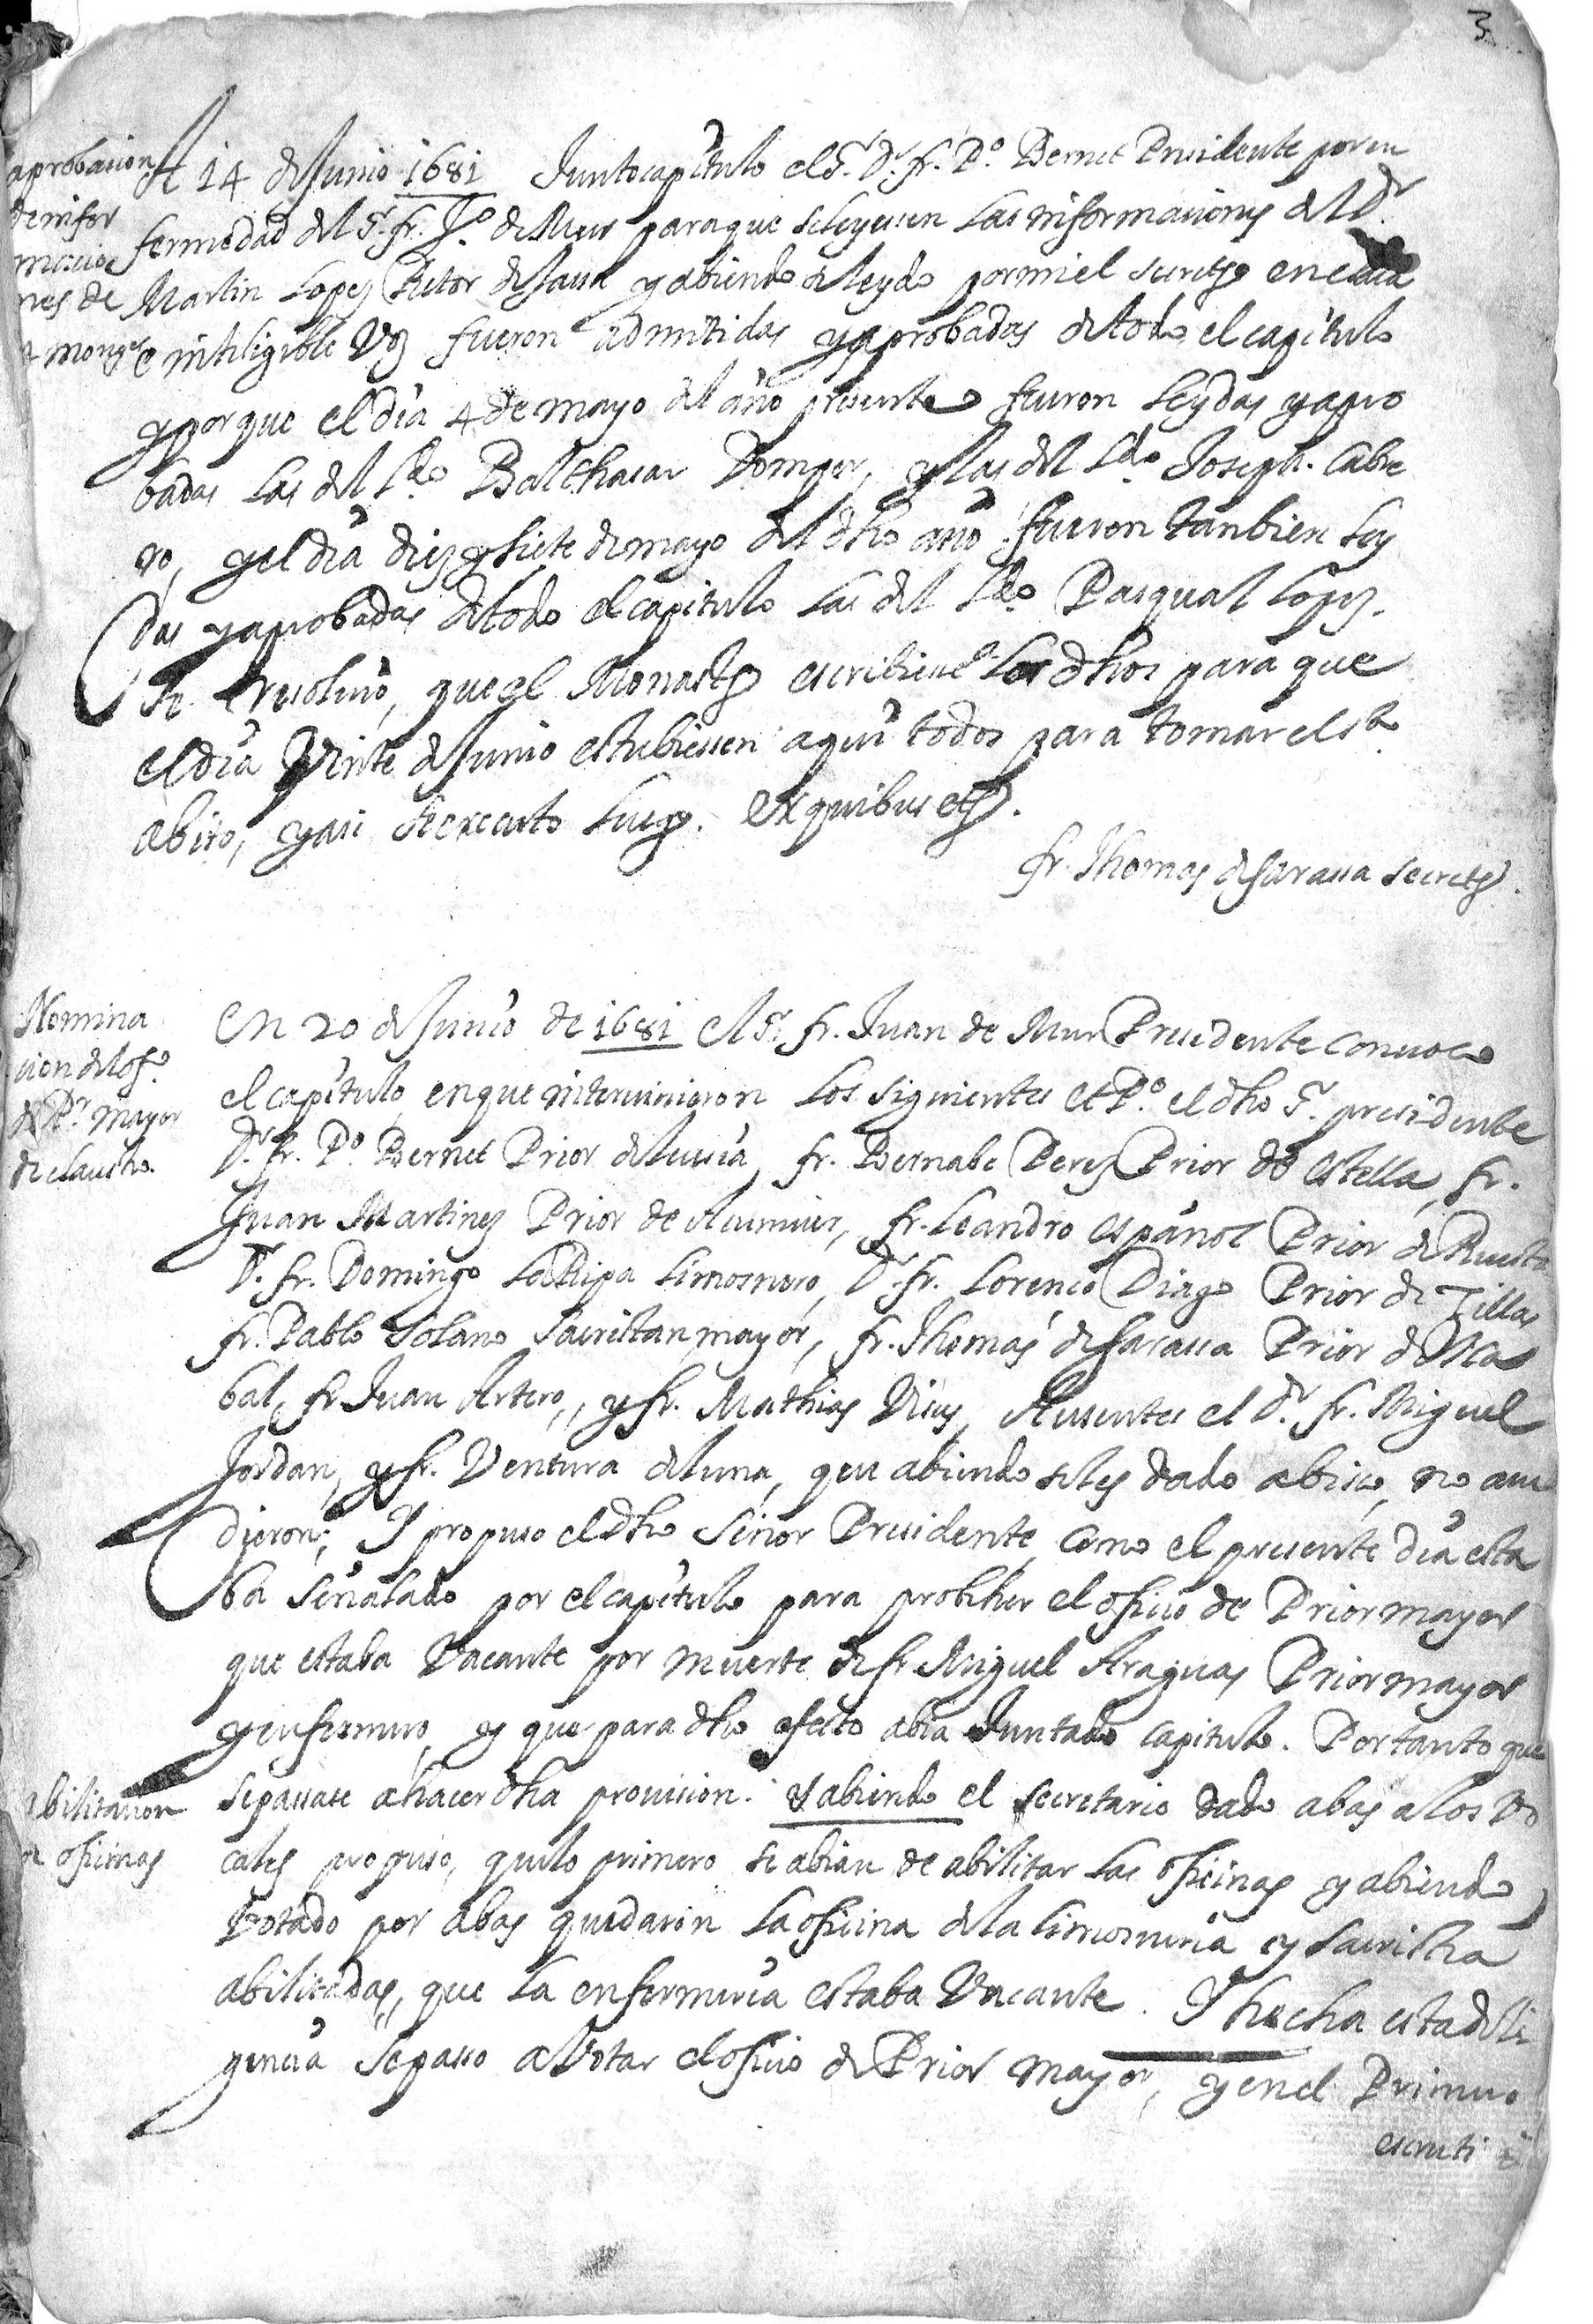 3
aprobacion
de infor
macio
nes de
4 monges
A 14 de Junio 1681 Junto capitulo el Sr. Dr. fr. Po. Bernet Presidente por en
fermedad del Sr. fr. Jo. de Mur para que se leyessen las informaciones del Dr.
Martin Lopez Retor de Jaca y abiendose leydo por mi el secretº en clara
e inteligible Voz fueron admitidas y aprobadas de todo el capitulo
y porque el dia 4 de mayo del año presente fueron leydas y apro
badas las del Ldo Balthasar Domper, y las del Ldo Joseph Cabre
ro, y el dia diez y siete de mayo del dho año fueron tanbien ley
das y aprobadas de todo el capitulo las del Ldo Pasqual Lopez.
Se resolvio, que el Monastº escribiese a los dhos para que
el dia Vinte de Junio estubiessen aqui todos para tomar el sto
abito, y asi se executo luego. Ex quibus etc.
fr. Thomas de Sarassa secretº.
Nomina
cion del ofo.
de Pr. mayor
de claustro.
En 20 de Junio de 1681 el Sr. fr. Juan de Mur Presidente convoco
el capitulo, en que intervinieron los siguientes et Po. el dho Sr. presidente
Dr. fr. Po Bernet Prior de Luesia, fr. Bernabe Perez Prior de Estella, fr.
Juan Martinez Prior de Acumuer, fr. Leandro español Prior de Ruesta
Dr. fr. Domingo La Ripa Limosnero, Dr. fr. Lorenco Diago Prior de Zillas
fr. Pablo Solano Sacristan mayor, fr. Thomas de Sarassa Prior de Na
bal, fr. Juan Artero, y fr. Mathias Vieus, Ausentes el Dr. fr. Miguel
Jordan, y fr. Ventura de luna, que abiendoseles dado abiso, no acu
dieron; Y propuso el dho Señor Presidente, como el presente dia esta
ba señalado por el capitulo para probeher el oficio de Prior mayor
que estaba Vacante por muerte de fr. Miguel Araguas Prior mayor
y enfermero, y que para dho efecto abia Juntado capitulo. Por tanto que
abilitacion
de oficinas
se passase a hacer dha provision. Y abiendo el secretario dado abas a los Vo
cales propuso, que lo primero se abian de abilitar las oficinas y abiendo
Votado por abas quedaron la oficina de la limosneria y sacristia
abilitadas, que la enfermeria estaba Vacante. Y hecha esta dili
gencia se passo a Votar el oficio de Prior mayor, y en el Primero
escruti